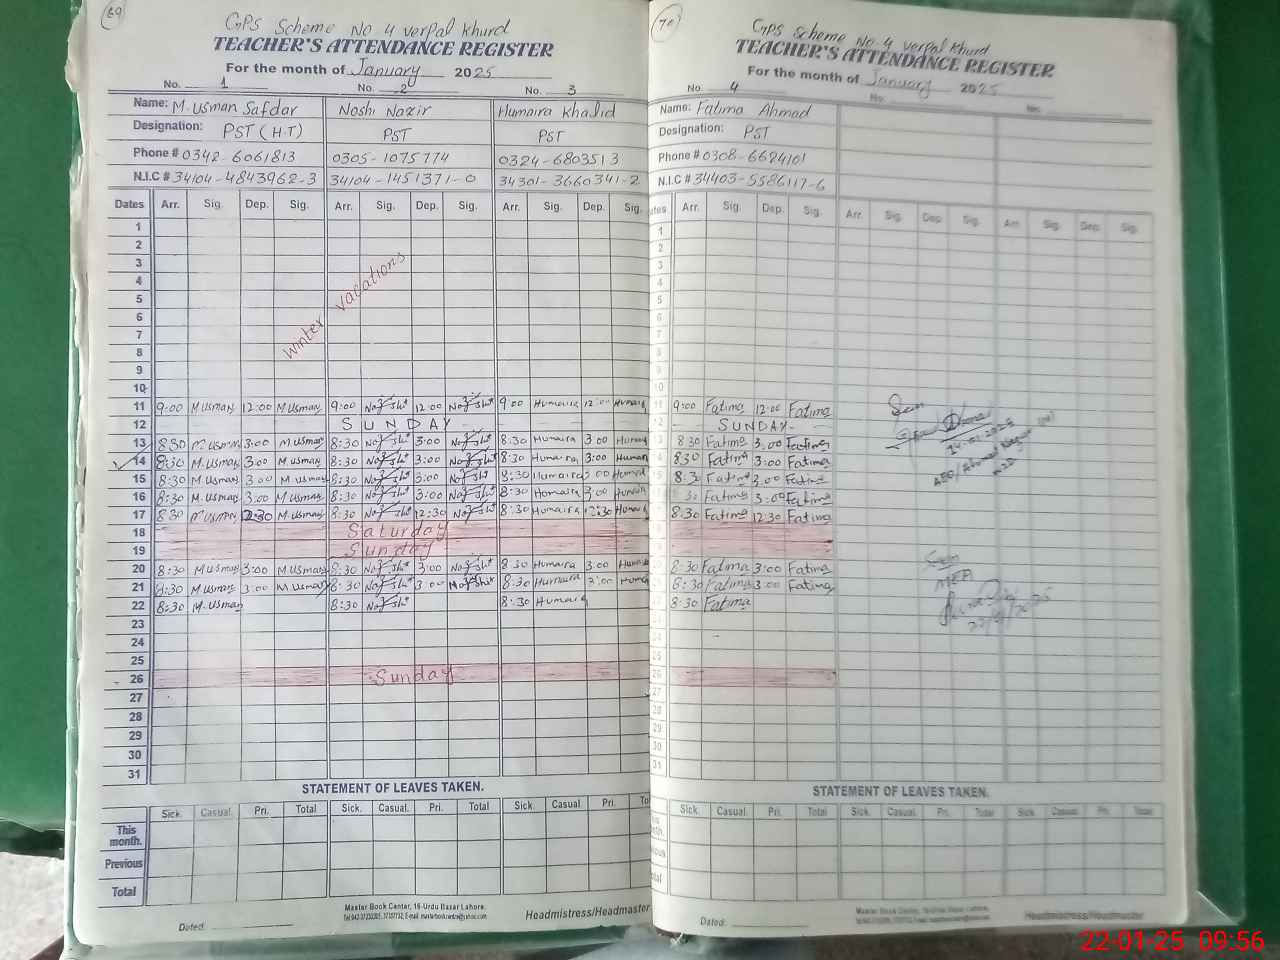 69
GPS Scheme No 4 verpal Khurd
TEACHER'S ATTENDANCE REGISTER
For the month of January 2025
No. 1 No. 2 No. 3
Name: M. Usman Safdar Noshi Nazir Humaira Khalid
Designation: PST (H-T) PST PST
Phone # 0342-6061813 0305-1075774 0324-6803513
N.I.C # 34104-4843962-3 34104-1451371-0 34301-3660341-2
Dates Arr. Sig. Dep. Sig. Arr. Sig. Dep. Sig. Arr. Sig. Dep. Sig.
1
2
3
4
5
6
7
8
9
10
winter vacations
11 9:00 M Usman 12:00 M Usman 9:00 Noshi 12:00 Noshi 9:00 Humaira 12:00 Humaira
12 SUNDAY
13 8:30 M. Usman 3:00 M Usman 8:30 Noshi 3:00 Noshi 8:30 Humaira 3:00
14 8:30 M. Usman 3:00 M Usman 8:30 Noshi 3:00 Noshi 8:30 Humaira 3:00
15 8:30 M. Usman 3:00 M Usman 8:30 Noshi 3:00 Noshi 8:30 Humaira 3:00
16 8:30 M. Usman 3:00 M Usman 8:30 Noshi 3:00 Noshi 8:30 Humaira 3:00
17 8:30 M Usman 12:30 M Usman 8:30 Noshi 12:30 Noshi 8:30 Humaira 12:30
18 Saturday
19 Sunday
20 8:30 M Usman 3:00 M Usman 8:30 Noshi 3:00 Noshi 8:30 Humaira 3:00
21 8:30 M Usman 3:00 M Usman 8:30 Noshi 3:00 Noshi 8:30 Humaira 3:00
22 8:30 M. Usman 8:30 Noshi 8:30 Humaira
23
24
25
26 Sunday
27
28
29
30
31
STATEMENT OF LEAVES TAKEN.
Sick. Casual. Pri. Total Sick. Casual. Pri. Total Sick. Casual Pri.
This month.
Previous
Total
Master Book Center, 16-Urdu Bazar Lahore.
Dated: Headmistress/Headmaster
70
GPS Scheme No 4 verpal Khurd
TEACHER'S ATTENDANCE REGISTER
For the month of January 2025
No. 4 No. No.
Name: Fatima Ahmad
Designation: PST
Phone # 0308-6624101
N.I.C # 34403-5586117-6
Arr. Sig. Dep. Sig. Arr. Sig. Dep. Sig. Arr. Sig. Dep. Sig.
1
2
3
4
5
6
7
8
9
10
9:00 Fatima 12:00 Fatima
SUNDAY
8:30 Fatima 3:00 Fatima
8:30 Fatima 3:00 Fatima
8:30 Fatima 3:00 Fatima
Fatima 3:00 Fatima
8:30 Fatima 12:30 Fatima
8:30 Fatima 3:00 Fatima
8:30 Fatima 3:00 Fatima
8:30 Fatima
Seen
14-01-2025
Seen
MEA
STATEMENT OF LEAVES TAKEN.
Sick. Casual. Pri. Total Sick. Casual. Pri. Total Sick Casual Pri. Total
Master Book Center, 16-Urdu Bazar Lahore.
Dated: Headmistress/Headmaster
22-01-25 09:56